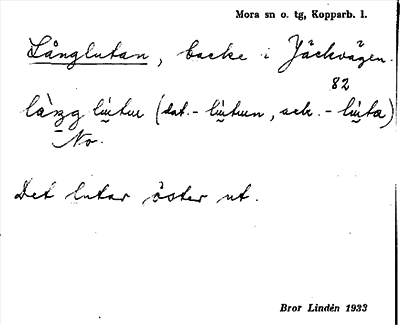 Mora sn o. tg, Kopparb. l.
Långlutan, backe i Jäckvägen.
82
làŋg lùtur (dat. - lùtun, ack. - lùta)
No.
Det lutar öster ut.
Bror Lindén 1933